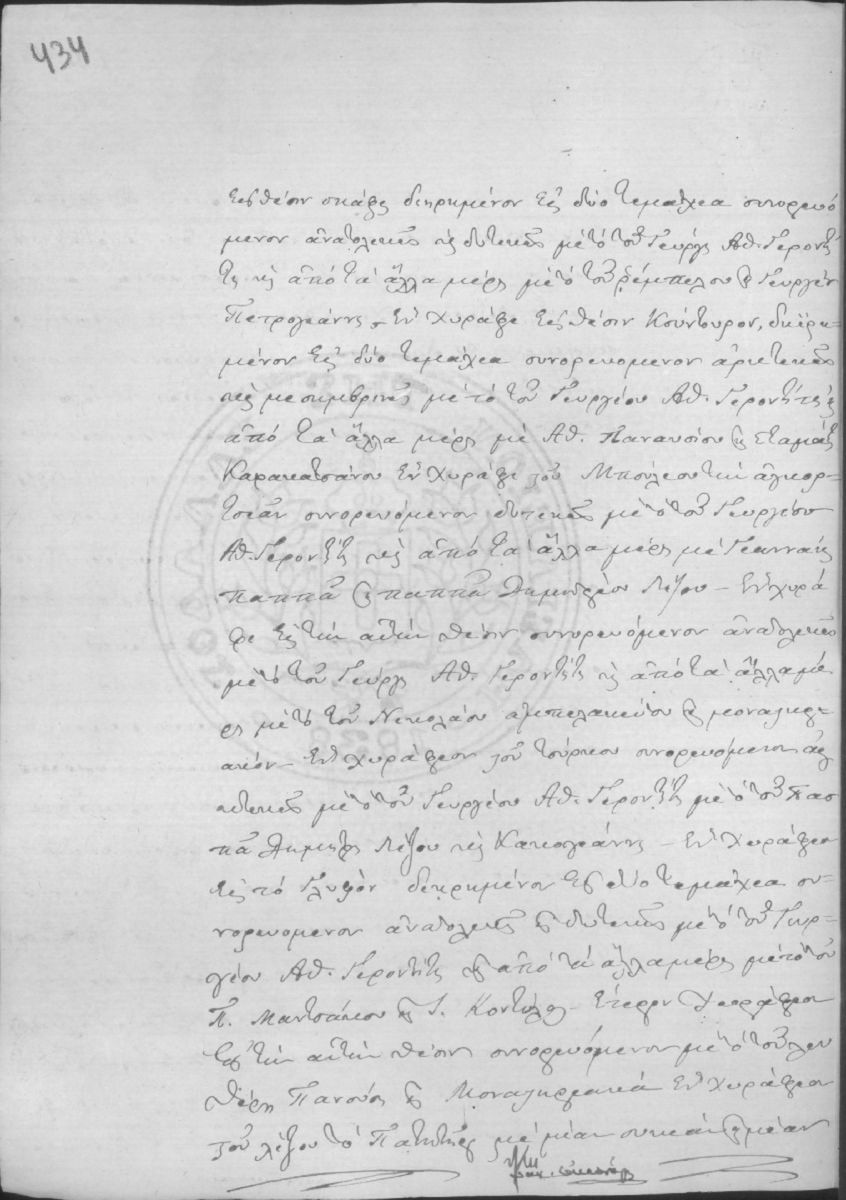 434
Εἰς θέσιν σκάφη διηρημένον εἰς δύο τεμάχια συνορευό
μενον ἀνατολικῶς κ δυτικῶς μὲ τὸ τοῦ Γεώργη Αθ. Γεροντί
τη κ ἀπὸ τὰ ἄλλα μέρη μὲ τὸ τοῦ ρέμπελου κ Γεωργίου
Πετρογιάννη – Ἓν χωράφι εἰς θέσιν Κούντουρον, διηρη-
μένον εἰς δύο τεμάχια συνορευομενον ἀρκτικῶς
κ μεσημβρινῶς μὲ τὸ τοῦ Γεωργίου Αθ. Γεροντίτη κ
ἀπὸ τὰ ἄλλα μέρη μὲ Αθ. Παναυσίου κ Σταμάτη
Καρακατσάνου Ἓν χωράφι τοῦ Μπουλέου τὴν ἀγκορ-
τσιὰν συνορευόμενον δυτικῶς μὲ τὸ τοῦ Γεωργίου
Αθ. Γεροντίτη κ ἀπὸ τὰ ἄλλα μέρη μὲ Γιαννάκη
παππᾶ κ παππᾶ Δημητρίου Λέζου – Ἓν χωρά
φι εἰς τὴν αὐτὴν θέσιν συνορευόμενον ἀνατολικῶς
μὲ τὸ τοῦ Γεώργη Αθ. Γεροντίτη κ ἀπὸ τὰ ἄλλα μέ
ρη μὲ τὸ τοῦ Νικολάου κ μοναστηρι
ακόν – Ἓν χωράφιον τοῦ τούρκου συνορευόμενον ἀρ
κτικῶς μὲ τὸ τοῦ Γεωργίου Αθ. Γεροντίτη μὲ τὸ τοῦ Παπ
πᾶ Δημήτρη Λέζου κ Κακογιάννη – Ἓν χωράφιον
εἰς τὸ Γλυφὸν διηρημένον εἰς δύο τεμάχια συ-
νορευομενον ἀνατολικῶς κ δυτικῶς μὲ τὸ τοῦ Γεωρ-
γίου Αθ. Γεροντίτη κ ἀπὸ τὰ ἄλλα μέρη μὲ τὸ τοῦ
Π. Μαντσάκου κ Γ. Κοντύλη – Ἕτερον χωράφιον
εἰς τὴν αὐτὴν θέσιν συνορευόμενον μὲ τὸ τοῦ Ελευ
θέρη Πανούση κ Μοναστηριακά Ἓν χωράφιον
τοῦ λέζου τὸ μὲ μίαν συκιὰν κ μίαν